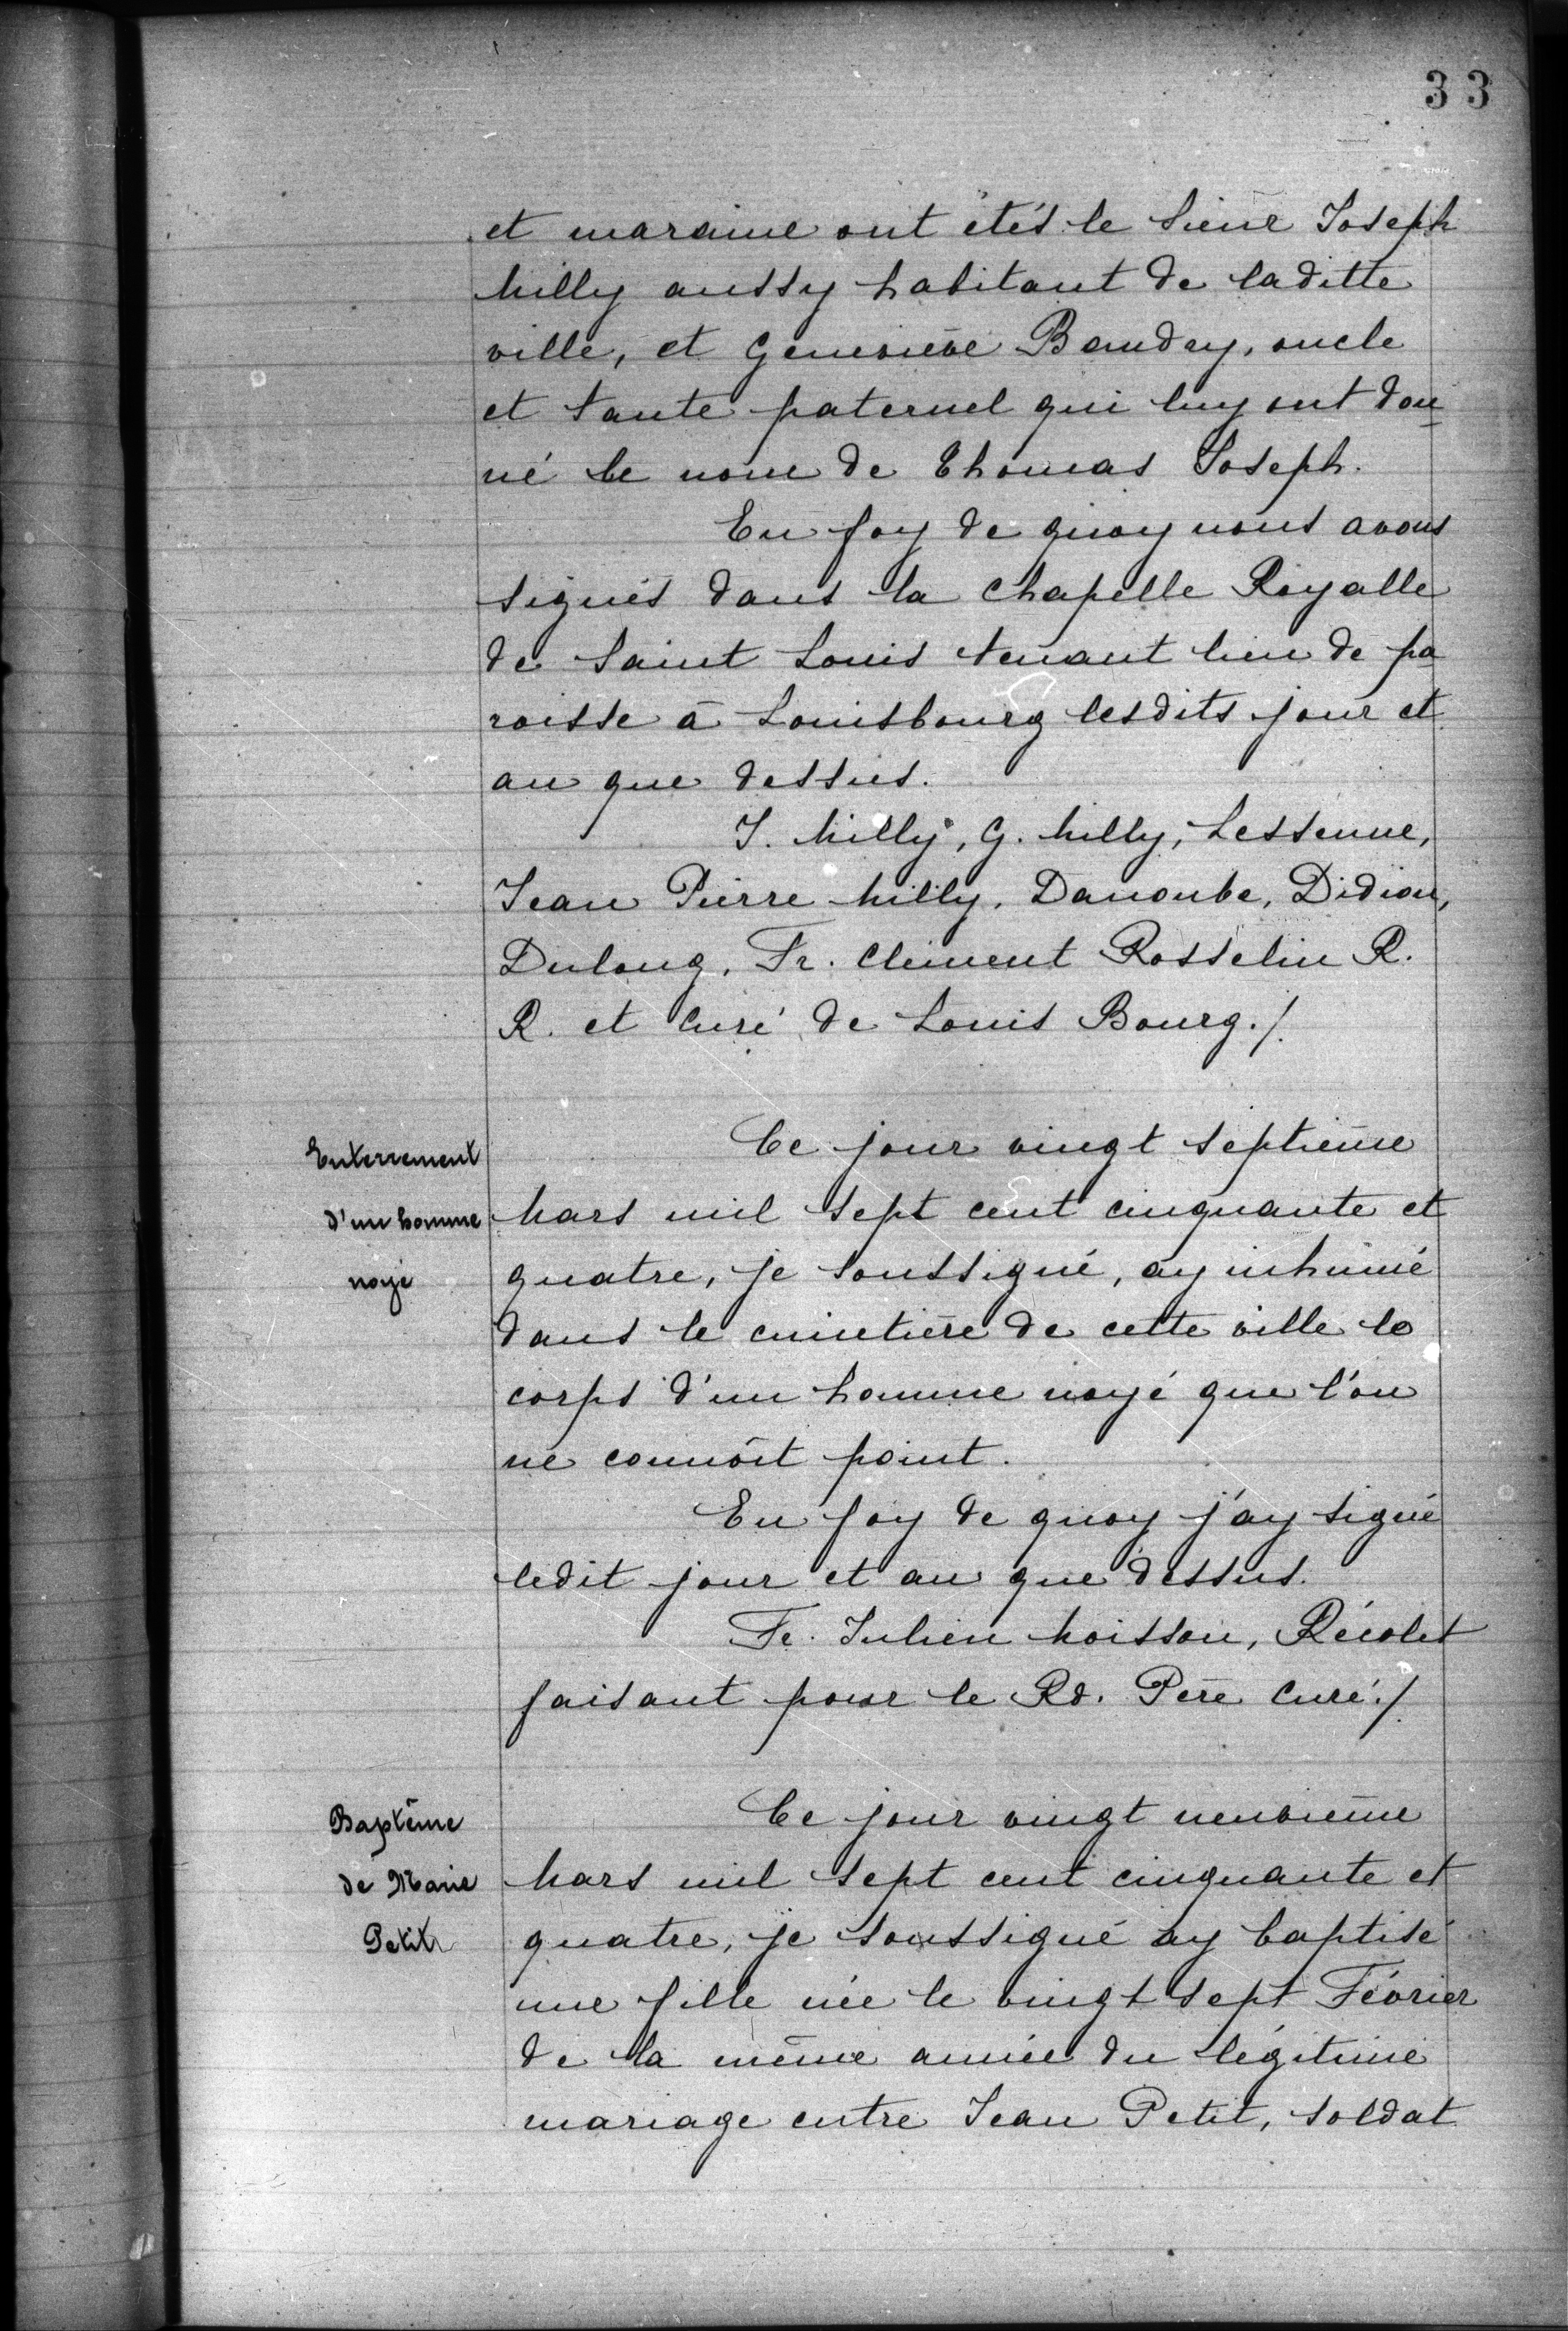 33
et maraine ont étés le Sieur Joseph
Milly aussy habitant de laditte
ville, et Geneviève Baudry, oncle
et tante paternel qui luy ont don-
né le nom de Thomas Joseph.
En foy de quoy nous avons
signés dans la Chapelle Royalle
de Saint Louis tenant lieu de pa
roisse à Louisbourg lesdits jour et
an que dessus.
J. Milly, G. Milly, Lessenne,
Jean Pierre Milly, Danoube, Didion,
Dulong, Fr. Clément Rosselin R.
R. et Curé de Louis Bourg./.
Enterrement
d'un homme
noyé
Ce jour vingt septième
Mars mil sept cent cinquante et
quatre, je soussigné, ay inhumé
dans le cimetière de cette ville le
corps d'un homme noyé que l'on
ne connôit point.
En foy de quoy j'ay signé
ledit jour et an que dessus.
Fr. Julien Moisson, Récolet
faisant pour le Rd. Père Curé./.
Baptême
de Marie
Petit
Ce jour vingt neuvième
Mars mil sept cent cinquante et
quatre, je soussigné ay baptisé
une fille née le vingt sept Février
de la même année du légitime
mariage entre Jean Petit, soldat